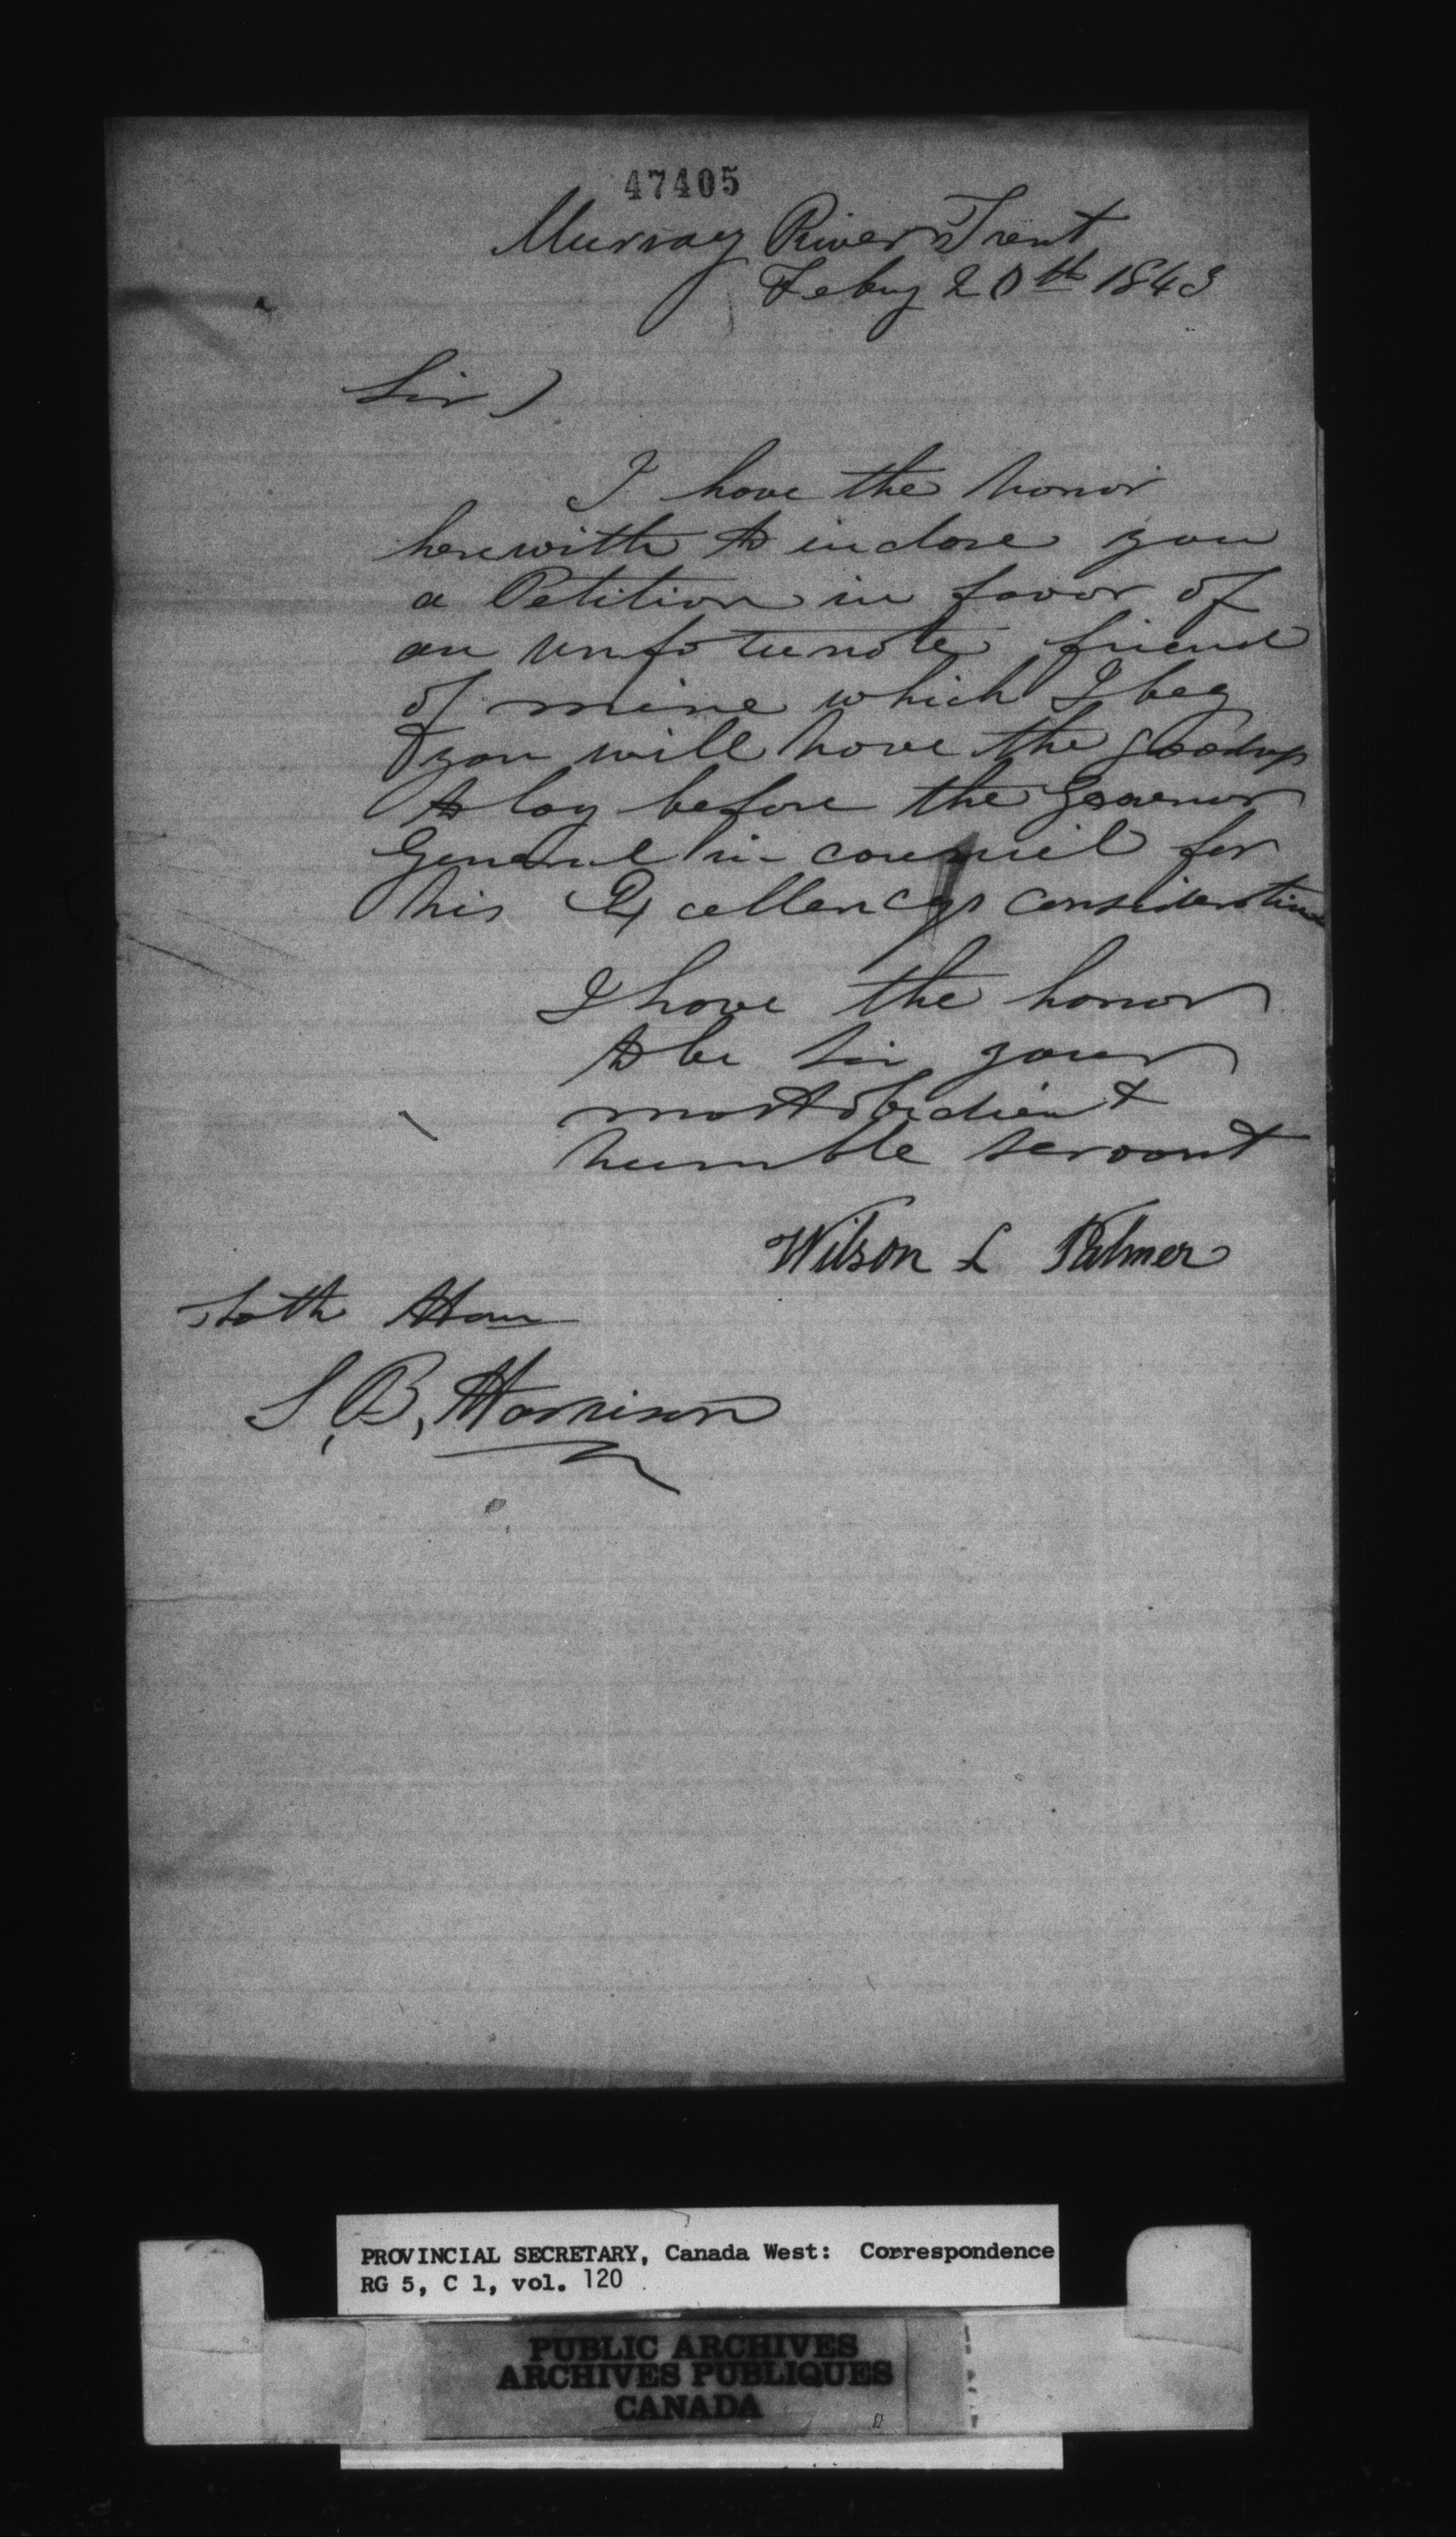 47405
Murray River Trent
Feby 20th 1843
Sir)
I have the honor
herewith to inclose you
a Petition in favor of
an unfotunate friend
of mine which I beg
you will have the goodness
to lay before the Govenor
General in council for
his Excellencys consideration
I have the honor
to be Sir your
most obedient
humble servant
Wilson L Palmer
To the Hon
S, B, Harrison
PROVINCIAL SECRETARY, Canada West: Correspondence
RG 5, C 1, vol. 120
PUBLIC ARCHIVES
ARCHIVES PUBLIQUES
CANADA